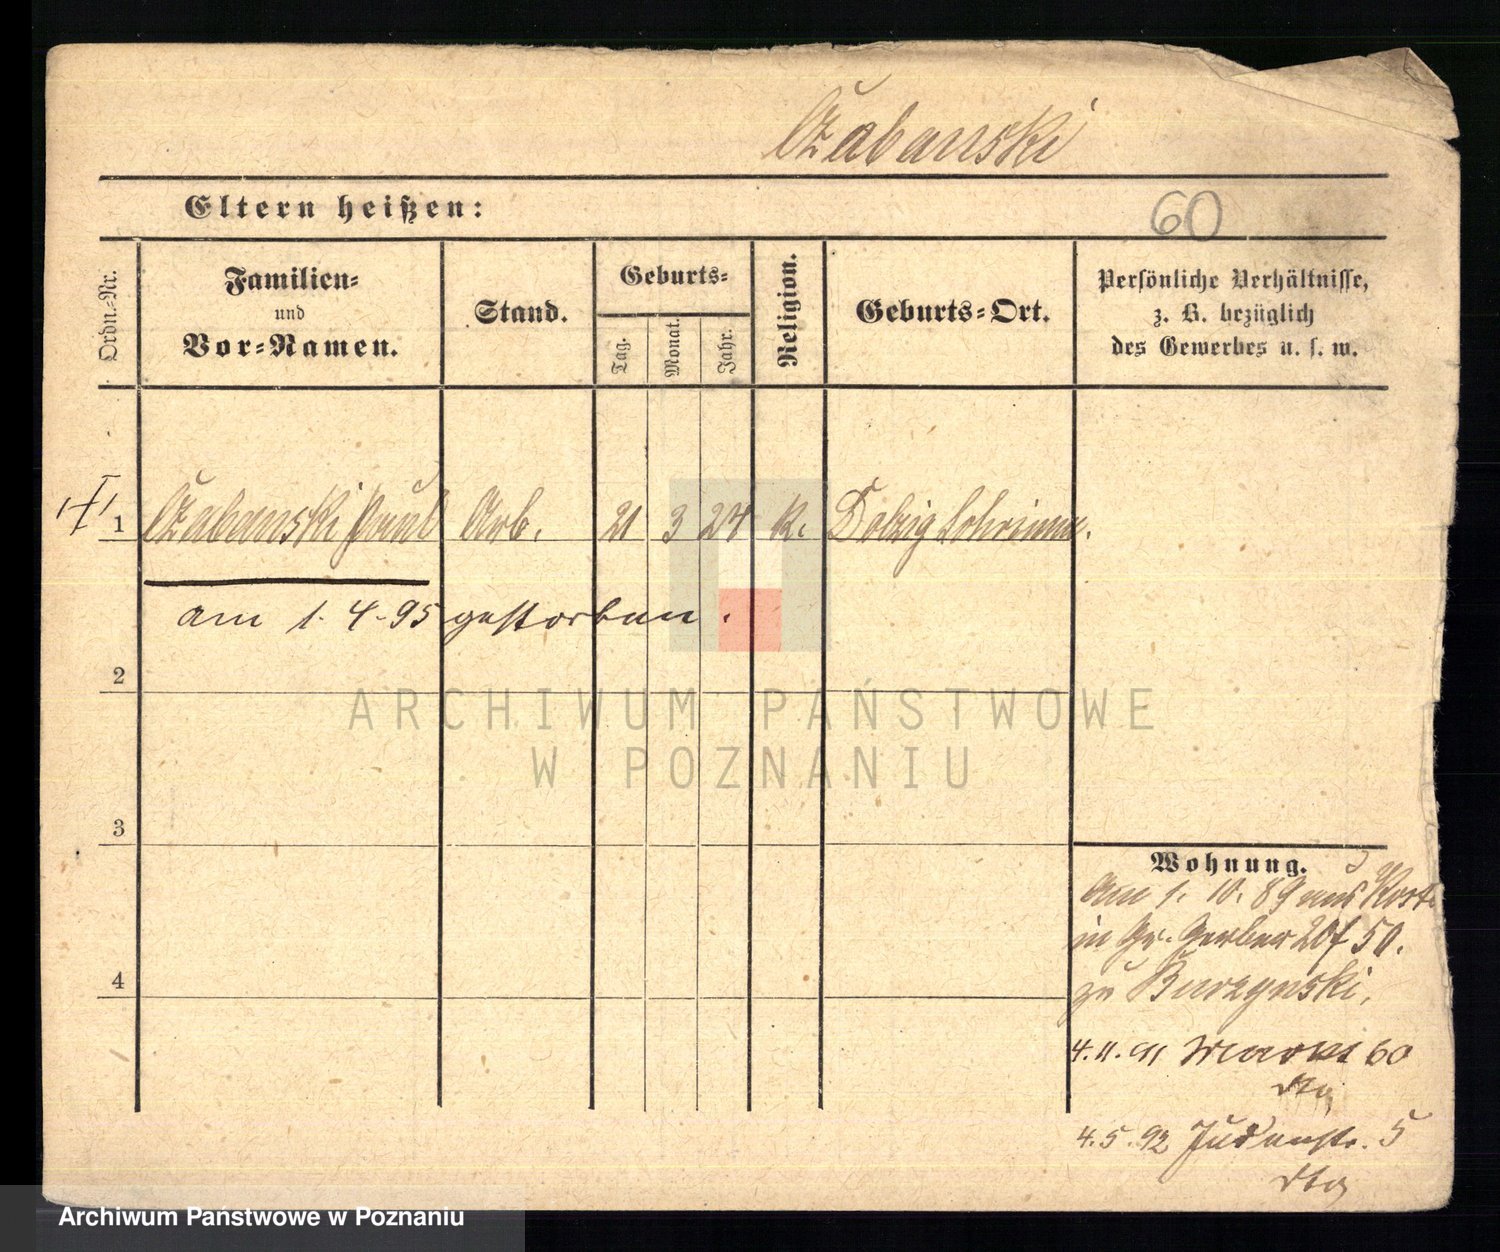 Czabanski
60
Eltern heißen:
Ordn.-Nr.
Familien-
und
Vor-Namen.
Stand.
Geburts-
Tag.
Monat.
Jahr.
Religion.
Geburts-Ort.
Persönliche Verhältnisse,
z. B. bezüglich
des Gewerbes u. s. w.
1 Czabanski Paul Arb. 21 3 24 K. Dolzig Schrimm.
am 1.4.95 gestorben.
2
3
4
Wohnung.
Am 1. 10. 89 aus
in Gr. Gerber 50.
zu Burzynski.
4.11.91 Markt 60
4.5.92 Judenstr. 5
ARCHIWUM PAŃSTWOWE
W POZNANIU
Archiwum Państwowe w Poznaniu